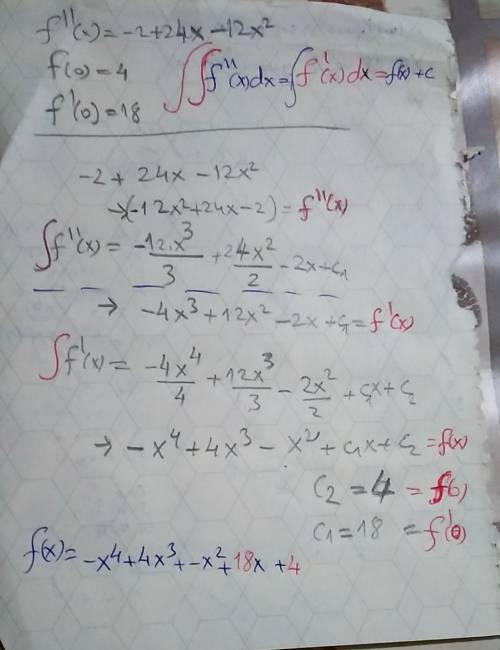 f''(x) = -2+24x-12x²
f(0)=4
∫∫f''(x)dx=∫f'(x)dx=f(x)+c
f'(0)=18
-2+24x-12x²
→(-12x²+24x-2)=f''(x)
∫f''(x)= -12x³/3 + 24x²/2 -2x+c₁
→ -4x³+12x²-2x+c₁=f'(x)
∫f'(x)= -4x⁴/4 + 12x³/3 - 2x²/2 + c₁x+c₂
→ -x⁴+4x³-x²+c₁x+c₂=f(x)
c₂=4=f(0)
c₁=18=f'(0)
f(x)= -x⁴+4x³+-x²+18x+4